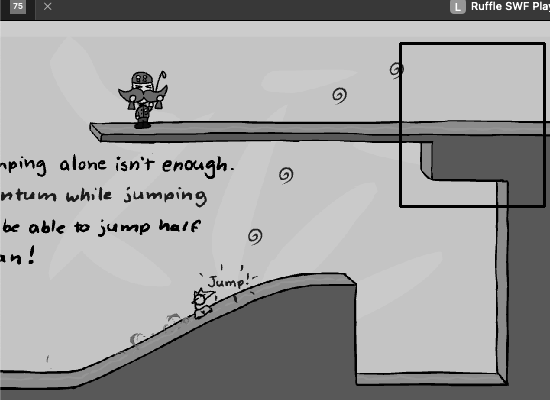 75
L Ruffle SWF Play
mping alone isn't enough.
ntum while jumping
be able to jump half
an!
Jump!